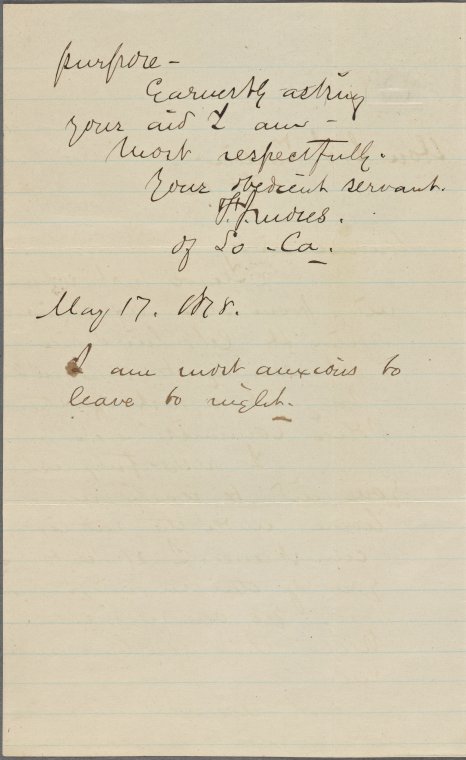 purpose -
Earnestly asking
your aid I am -
Most respectfully.
Your obedient servant.
of So - Ca.
May 17. 1878.
I am most anxious to
leave to night.